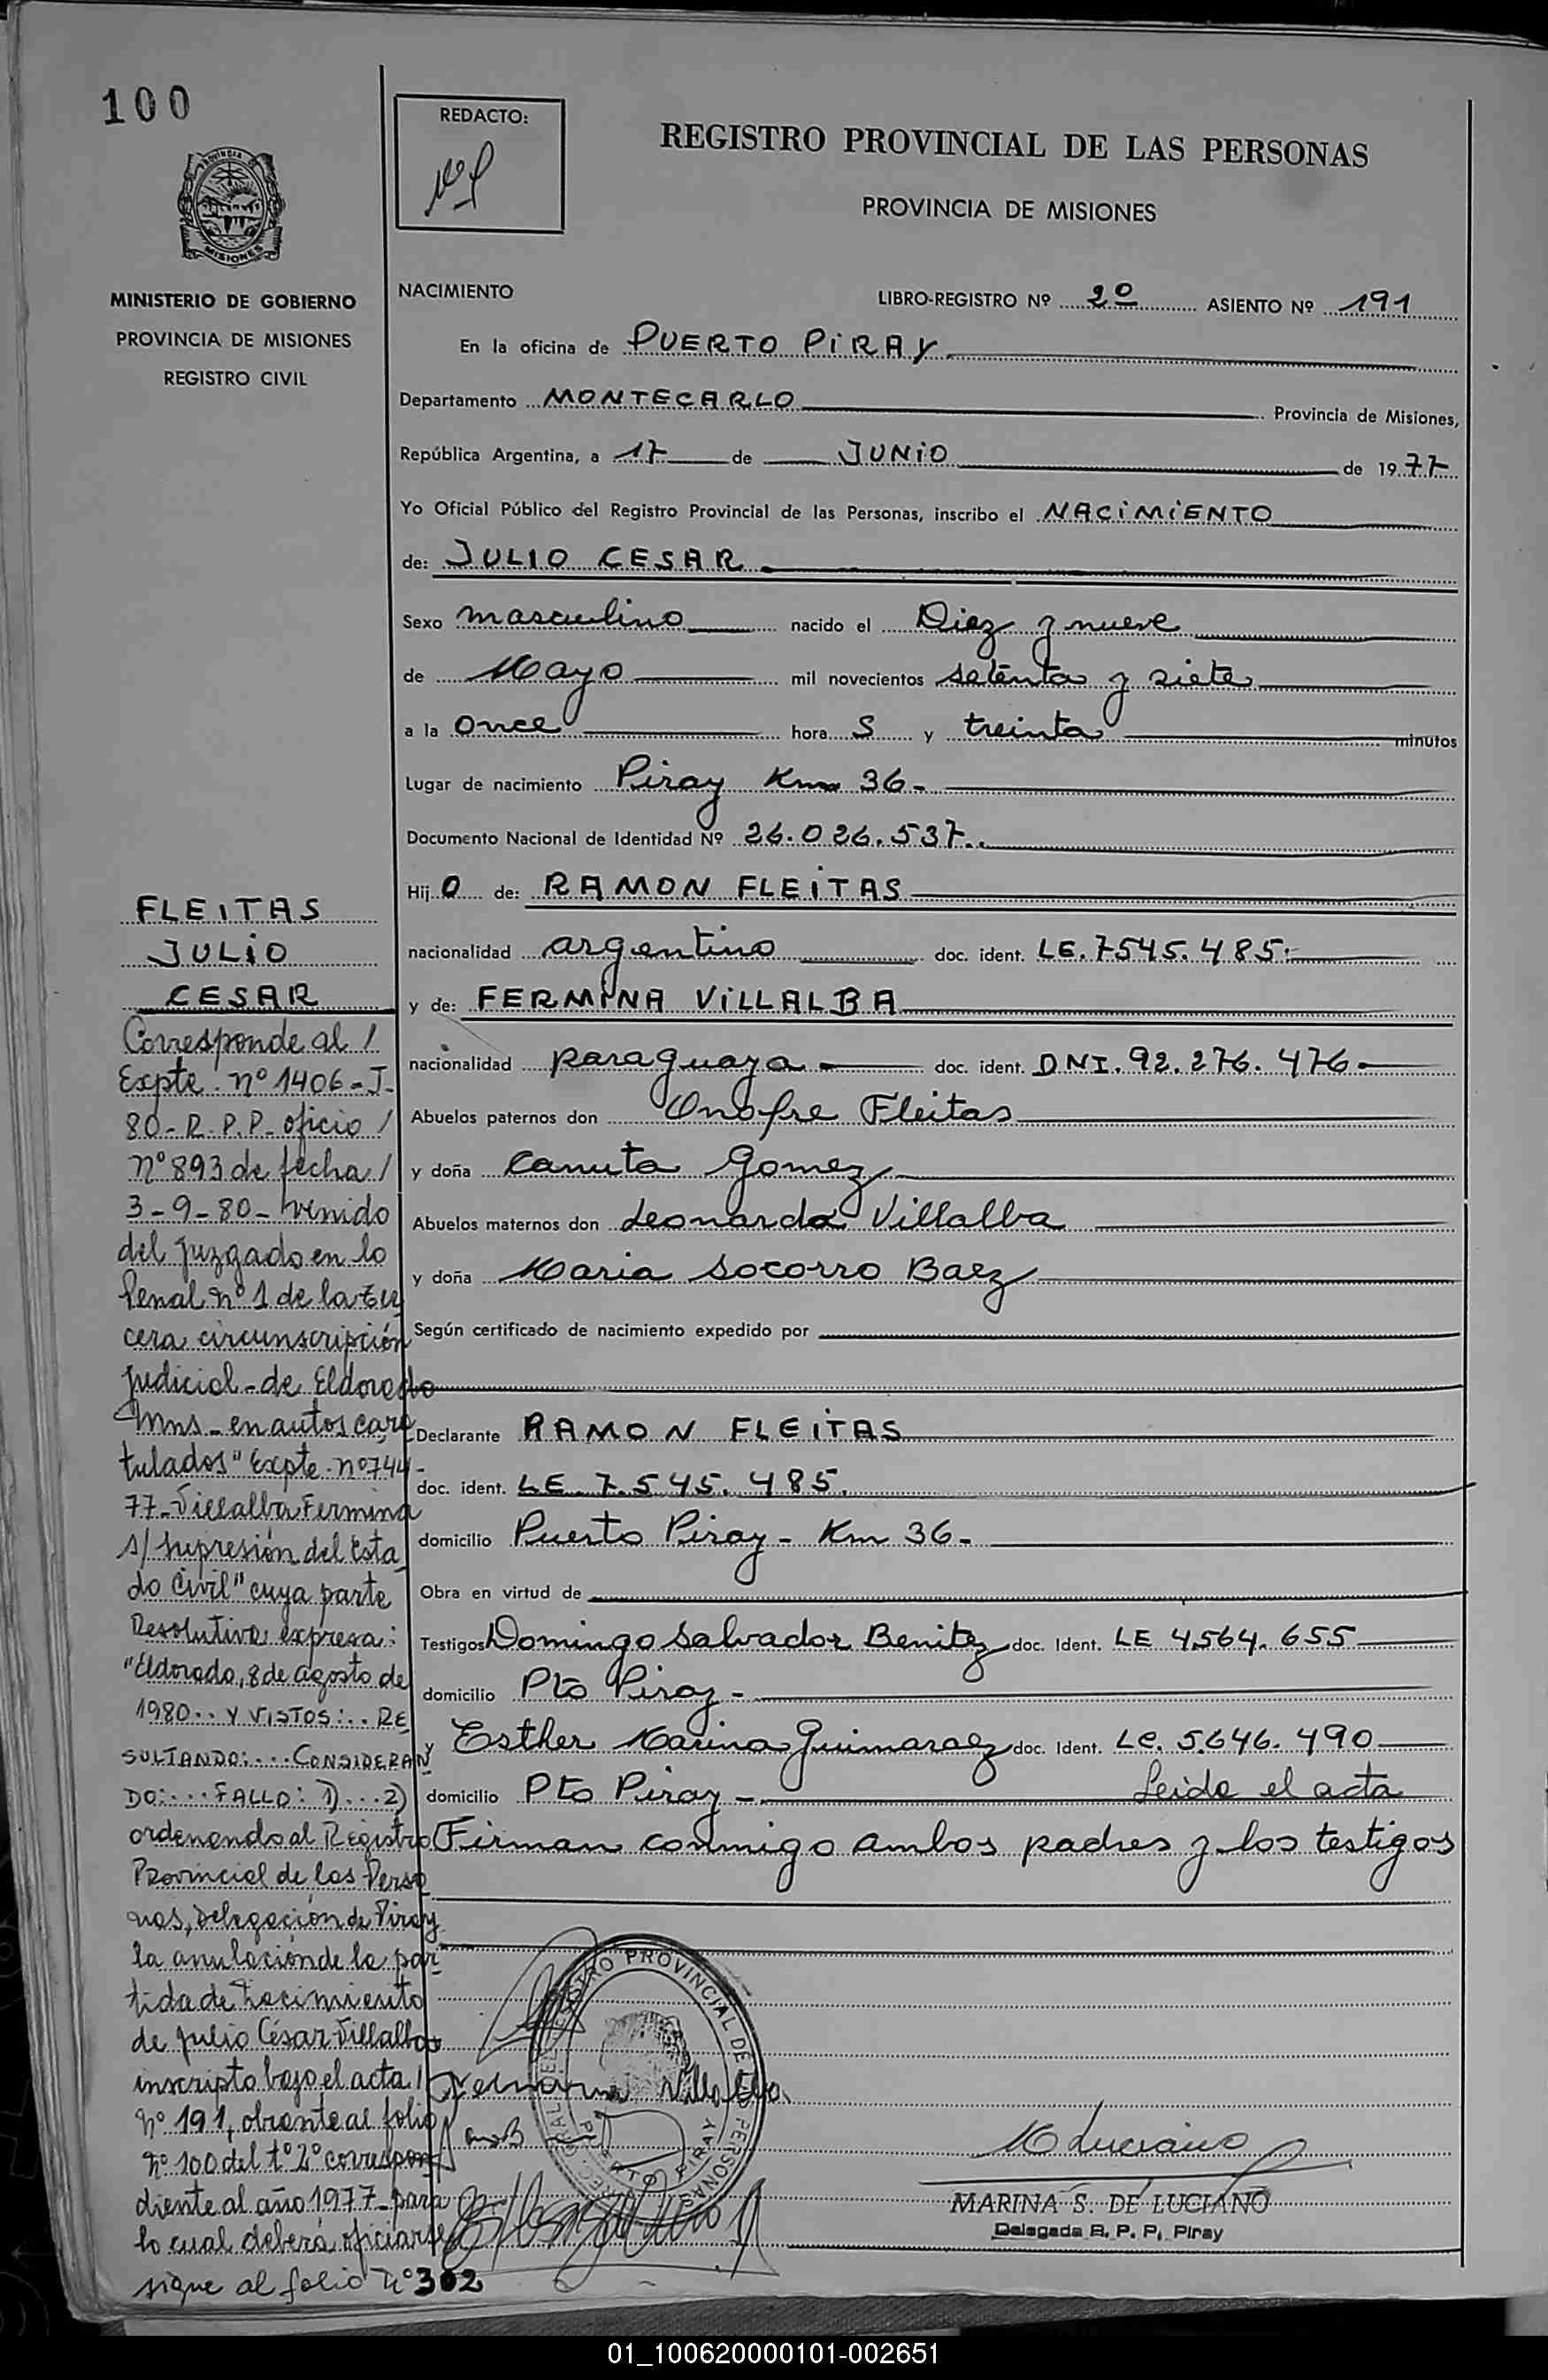 100
REDACTO:
REGISTRO PROVINCIAL DE LAS PERSONAS
PROVINCIA DE MISIONES
PROVINCIA DE
MISIONES
MINISTERIO DE GOBIERNO
PROVINCIA DE MISIONES
REGISTRO CIVIL
NACIMIENTO
LIBRO-REGISTRO Nº 2º ASIENTO Nº 191
En la oficina de PUERTO PIRAY
Departamento MONTECARLO Provincia de Misiones,
República Argentina, a 17 de JUNIO de 1977
Yo Oficial Público del Registro Provincial de las Personas, inscribo el NACIMIENTO
de: JULIO CESAR
Sexo masculino nacido el Diez y nueve
de Mayo mil novecientos setenta y siete
a la once hora s y treinta minutos
Lugar de nacimiento Piray Km 36-
Documento Nacional de Identidad Nº 26.026.537..
Hij o de: RAMON FLEITAS
nacionalidad argentino doc. ident. LE. 7545.485.
y de: FERMINA VILLALBA
nacionalidad paraguaya doc. ident. DNI. 92.276.476
Abuelos paternos don Onofre Fleitas
y doña Canuta Gomez
Abuelos maternos don Leonardo Villalba
y doña Maria Socorro Baez
Según certificado de nacimiento expedido por
Declarante RAMON FLEITAS
doc. ident. LE 7.545.485.
domicilio Puerto Piray - Km 36-
Obra en virtud de
Testigos Domingo Salvador Benitez doc. Ident. LE 4564.655
domicilio Pto Piray-
y Esther Marina Guimaraez doc. Ident. LC. 5.646.490
domicilio Pto Piray- Leida el acta
Firman conmigo ambos padres y los testigos
FLEITAS
JULIO
CESAR
Corresponde al /
Expte. nº 1406-J-
80-R.P.P. oficio /
nº 893 de fecha /
3-9-80- venido
del Juzgado en lo
Penal nº 1 de la ter
cera circunscripción
Judicial-de Eldorado
Mns- en autos cara
tulados "Expte. nº 744-
77-Villalba Fermina
s/ supresión del Esta
do Civil" cuya parte
Resolutiva expresa:
"Eldorado, 8 de agosto de
1980.. Y VISTOS:.. RE
SULTANDO:... CONSIDERAN
DO:... FALLO: 1)...2)
ordenando al Registro
Provincial de las Perso
nas, Delegación de Piray
la anulación de la par-
tida de Nacimiento
de Julio César Villalba
inscripto bajo el acta /
Nº 191, obrante al folio
Nº 100 del tº 2º correspon
diente al año 1977- para
lo cual deberá oficiarse
sigue al folio Nº 302
REGISTRO PROVINCIAL DE
PERSONAS
PUERTO PIRAY
Fermina Villalba
M Luciano
MARINA S. DE LUCIANO
Delegada R. P. P. Piray
01_100620000101-002651